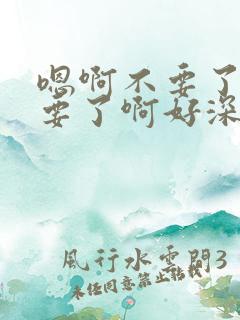 嗯啊不要了
要了啊好深
風行水雲間3
未经同意禁止转载